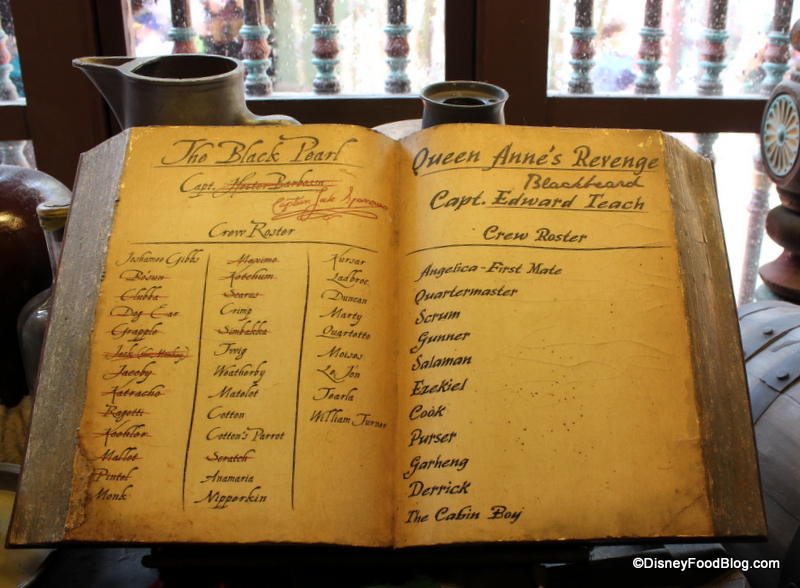 The Black Pearl
Capt. Hector Barbossa
Captain Jack Sparrow
Crew Roster
Joshamee Gibbs
Bo'sun
Clubba
Dog Ear
Grapple
Jack (the Monkey)
Jacoby
Katracho
Ragetti
Koehler
Mallot
Pintel
Monk
Maximo
Ketchum
Scarus
Crimp
Simbakka
Twig
Weatherby
Matelot
Cotton
Cotton's Parrot
Scratch
Anamaria
Nipperkin
Kursar
Ladbroc
Duncan
Marty
Quartetto
Moises
Le Jon
Tearla
William Turner
Queen Anne's Revenge
Blackbeard
Capt. Edward Teach
Crew Roster
Angelica - First Mate
Quartermaster
Scrum
Gunner
Salaman
Ezekiel
Cook
Purser
Garheng
Derrick
The Cabin Boy
©DisneyFoodBlog.com